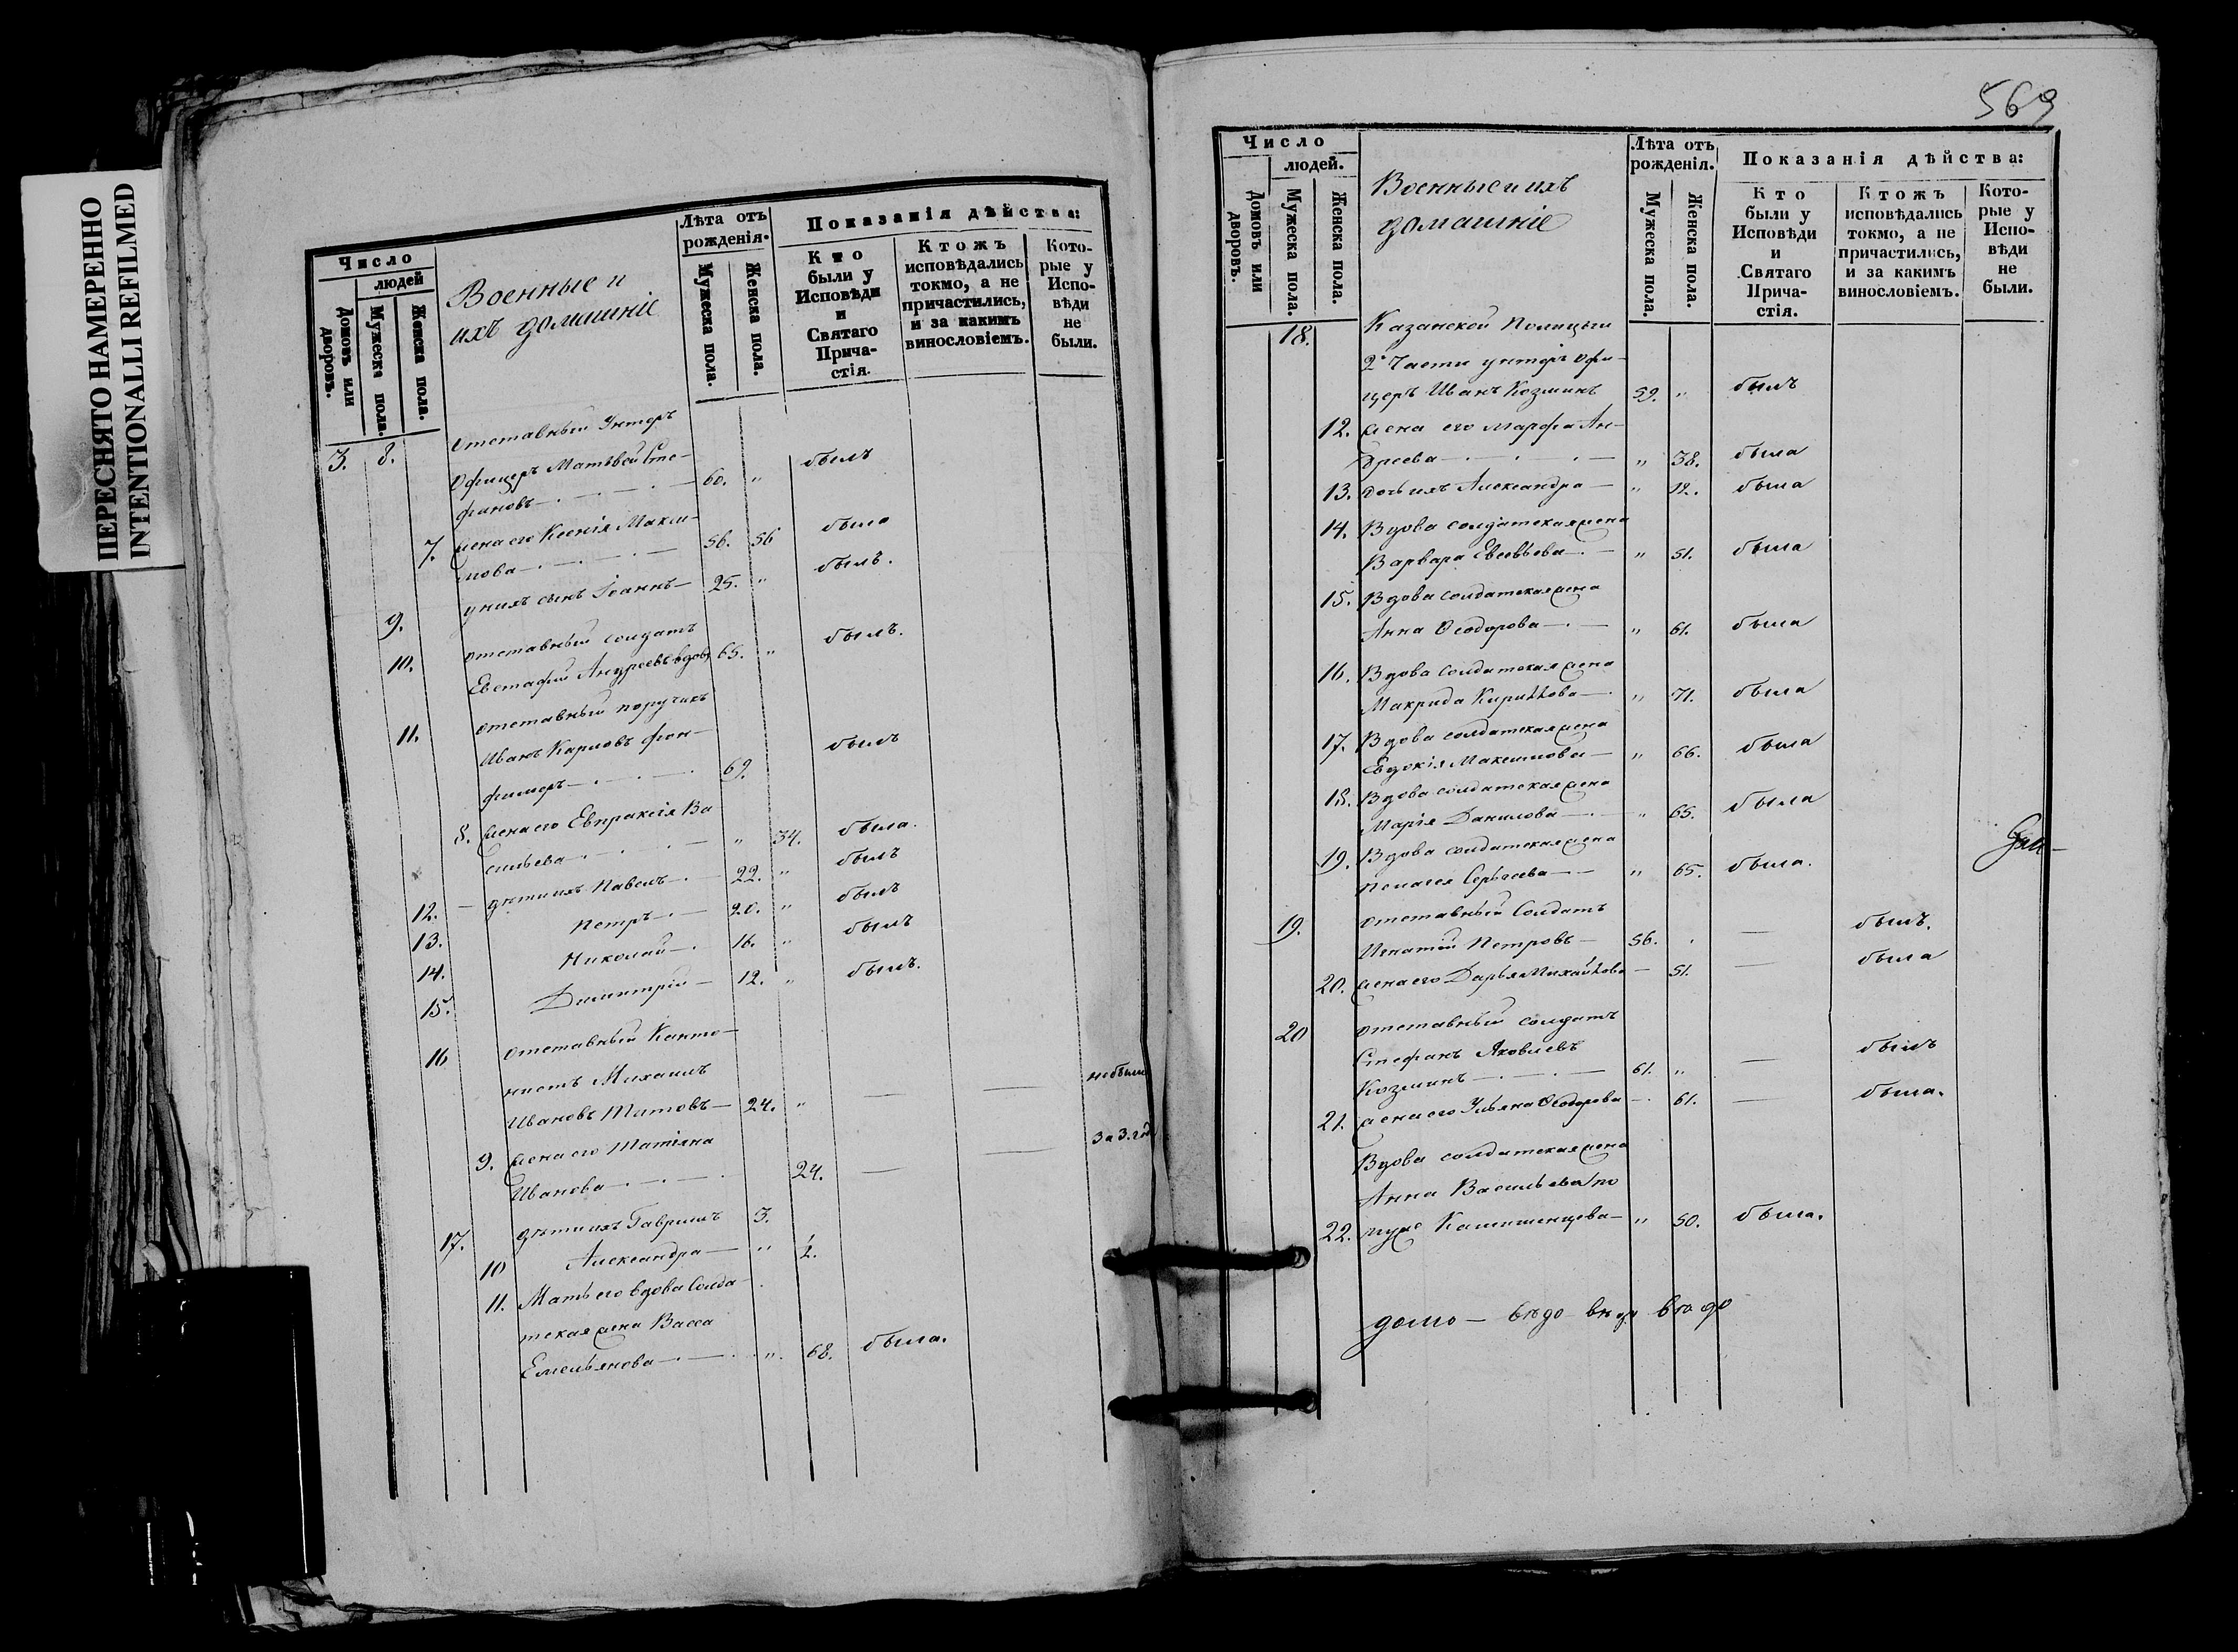 ПЕРЕСНЯТО НАМЕРЕННО
INTENTIONALLI REFILMED
Число
людей
Домовъ или дворовъ.
Мужеска пола.
Женска пола.
Военные и
ихъ домашніе
Лѣта отъ рожденія.
Мужеска пола.
Женска пола.
Показанія дѣйства:
Кто были у Исповѣди и Святаго Прича-стія.
Ктожъ исповѣдались токмо, а не причастились, и за какимъ винословіемъ.
Кото-рые у Испо-вѣди не были.
3. 8. отставный Унтеръ
Офицеръ Матвѣй Сте-
фановъ 60. " былъ
7. жена его Ксенія Макси-
мова 56. 56 была
9. у нихъ сынъ Іоаннъ 25. " былъ.
10. отставный солдатъ
Евстафій Андреевъ вдовъ 65. " былъ.
11. отставный поручикъ
Иванъ Карловъ фон-
69. былъ
8. жена его Евпраксія Ва
сильева " 34. была.
12. дѣти ихъ Павелъ 22. " былъ
13. Петръ 20. " былъ
14. Николай 16. " былъ
15. Димитрій 12. " былъ.
16 отставный Канто-
нистъ Михаилъ
Ивановъ Титовъ 24. " — — не были
9. жена его Татіяна
Иванова 24. — — за 3. год
17. дѣти ихъ Гавріилъ 3.
10 Александра " 2.
11. Мать его вдова Солда-
тская жена Васса
Емельянова " 68. была.
569
Число
людей.
Домовъ или дворовъ.
Мужеска пола.
Женска пола.
Военные и ихъ
домашніе
Лѣта отъ рожденія.
Мужеска пола.
Женска пола.
Показанія дѣйства:
Кто были у Исповѣди и Святаго Прича-стія.
Ктожъ исповѣдались токмо, а не причастились, и за какимъ винословіемъ.
Кото-рые у Испо-вѣди не были.
18. Казанской Полиціи
2й Части унтеръ Офи-
церъ Иванъ Козминъ 59. " былъ
12. жена его Марфа Ан-
дреева " 38. была
13. дочь ихъ Александра " 12. была
14. Вдова солдатская жена
Варвара Евсевьева " 51. была
15. Вдова солдатская жена
Анна Ѳеодорова " 61. была
16. Вдова солдатская жена
Макрида Кирилова " 71. была
17. Вдова солдатская жена
Евдокія Максимова " 66. была
18. Вдова солдатская жена
Марія Данилова " 65. была
19. Вдова солдатская жена
Пелагея Сергѣева " 65. была.
19. отставный Солдатъ
Игнатій Петровъ 56. — былъ.
20. жена его Дарья Михайлова 51. — была
20 отставный солдатъ
Стефанъ Яковлевъ
Козминъ 61. " — былъ
21. жена его Ульяна Ѳеодорова 61. — была.
Вдова солдатская жена
Анна Васильева по
22. мужѣ " 50. была.